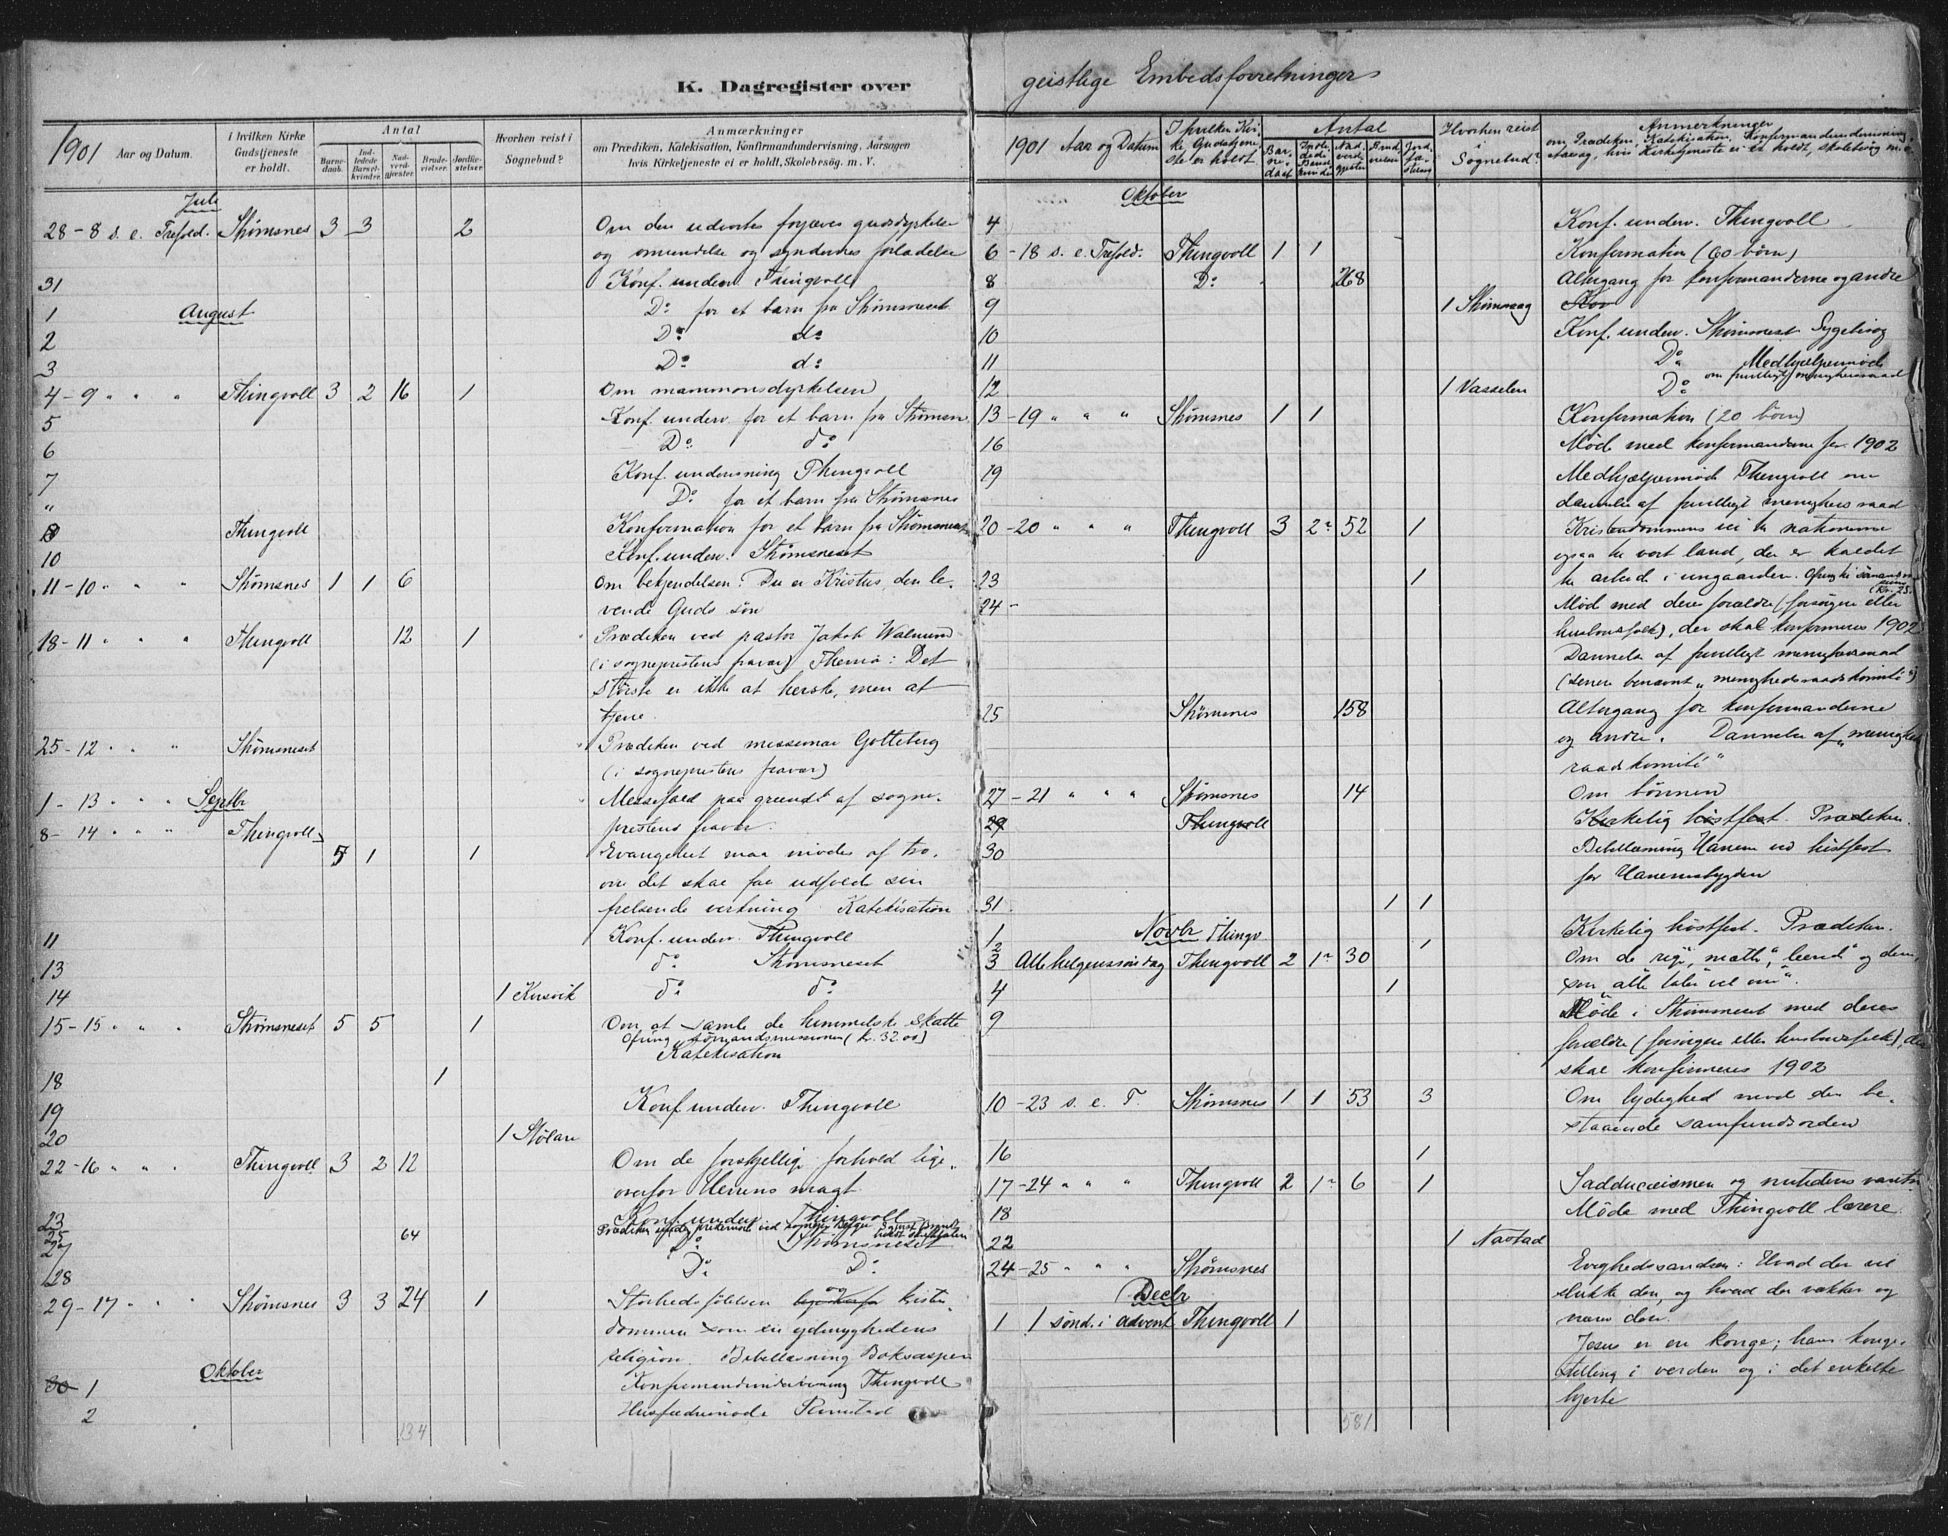 K. Dagregister over
1901 Aar og Datum.
i hvilken Kirke Gudstjeneste er holdt.
Antal
Barne-daab.
Ind-ledede Barsel-kvinder.
Nad-verd-gjester.
Brude-vielser.
Jordfæ-stelser
Hvorhen reist i Sognebud?
Anmærkninger
om Prædiken, Katekisation, Konfirmandundervisning, Aarsagen
hvis Kirketjeneste ei er holdt, Skolebesøg. m. V.
Juli
28 - 8 s. e. Trefold. Strømsnes 3 3 2 Om den udvortes forjæves gudsdyrkelse
og omvendelse og syndernes forladelse
31 Konf. underv. Thingvoll
August
1 Do for et barn fra Strømsneset
2 Do do
3 Do do
4 - 9 " " " Thingvoll 3 2 16 1 Om mammonsdyrkelsen
5 Konf. underv. for et barn fra Strømsn.
6 Do do
7 Konf. undervisning Thingvoll
" Do for et barn fra Strømsnes
8 Thingvoll Konfirmation for et barn fra Strømsneset
10 Konf. underv. Strømsneset
11 - 10 " " " Strømsnes 1 1 6 Om bekjendelsen: Du er Kristus, den le-
vende Guds søn
18 - 11 " " " Thingvoll 12 1 Prædiken ved pastor Jakob Walnum
(i sogneprestens fravær) Thema: Det
største er ikke at herske, men at
tjene.
25 - 12 " " " Strømsneset Prædiken ved messemør Gotteberg
(i sogneprestens fravær)
Septbr
1 - 13 " " " Messefald paa grund af sogne-
prestens fravær.
8 - 14 " " " Thingvoll 5 1 1 Evangeliet maa mødes af tro,
om det skal faa udfolde sin
frelsende virkning Katekisation
11 Konf. underv. Thingvoll
13 do Strømsneset
14 1 Kusvik do do
15 - 15 " " " Strømsneset 5 5 1 Om at samle de himmelske skatte
Ofring sømandsmissionen (kr. 32.00)
Katekisation
18 1
19 Konf. underv. Thingvoll
20 1 Stølan
22 - 16 " " " Thingvoll 3 2 12 Om de forskjellige forhold lige-
overfor Herrens magt
23 Konf. underv. Thingvoll
25 64 Prædiken
27 Do Strømsneset
28 Do Do
29 - 17 " " " Strømsnes 3 3 24 1 Storhedsfølelsen og kristen-
dommen som en ydmyghedens
religion. Bibellæsning Boksaspen
Oktober
30 1 Konfirmandundervisning Thingvoll
2 Husfædremøde Rimstad
134
geistlige Embedsforretninger
1901 Aar og Datum
I hvilken Kir-ke Gudstjene-ste er holdt.
Antal
Bar-ne-daab
Indle-dede Barsel-kvinder
Nad-verd-gjester
Brud-vielser
Jord-fæ-stelser
Hvorhen reist i Sognebud?
Anmerkninger
om Prædiken, Katekisation, Konfirmandundervisning,
Aarsag, hvis Kirketjeneste ei er holdt, skolebesøg m. v.
Oktober
4 Konf. underv. Thingvoll
6 - 18 s. e. Trefold. Thingvoll 1 1 Konfirmation (60 børn)
8 Do 268 Altergang for konfirmanderne og andre
9 1 Strømsvaag
10 Konf. underv. Strømsneset. Sygebesøg
11 Do Medhjælpermøde
12 1 Vasselen Do om frivilligt menighedsraad
13 - 19 " " " Strømsnes 1 1 Konfirmation (20 børn)
16 Møde med konfirmanderne for 1902
19 Medhjælpermøde Thingvoll om
dannelse af frivilligt menigheds raad
20 - 20 " " " Thingvoll 3 2 52 1 Kristendommens vei til nationerne
ogsaa til vort land, der er kaldet
23 1 til arbeide i vingaarden. Ofring til sømandsm. (Kr. 25.
24 - Møde med deres forældre (forsørgere eller
husbondsfolk), der skal konfirmeres 1902
Dannelse af frivilligt menighedsraad
(senere benævnt "menighedsraadskomité")
25 Strømsnes 158 Altergang for konfirmanderne
og andre. Dannelse af "menigheds
raadskomité"
27 - 21 " " " Strømsnes 14 Om bønnen
29 Thingvoll Kirkelig høstfest. Prædiken.
30 Bibellæsning Hanem ved høstfest
for Hanemsbygden
31 1 1
Novbr
1 Thingv. Kirkelig høstfest. Prædiken.
2 1
3 Allehelgenssøndag Thingvoll 2 1 30 Om de rige, mætte, leende og dem,
som alle taler vel om.
4 1
9 Møde i Strømsneset med deres
forældre (forsørgere eller husbondsfolk), der
skal konfirmeres 1902
10 - 23 s. e. T. Strømsnes 1 1 53 3 Om lydighed mod den be-
staaende samfundsorden
16 1
17 - 24 " " " Thingvoll 2 1 6 1 Sadducæismen og nutidens vantro
18 Møde med Thingvoll lærere.
22 1 Nastad
24 - 25 " " " Strømsnes Evighedssandsen: Hvad der vil
slukke den, og hvad der vækker og
nærer den.
Decbr
1 1 sønd. i advent Thingvoll 1 Jesus er en konge; hans konge-
stilling i verden og i det enkelte
hjerte
581